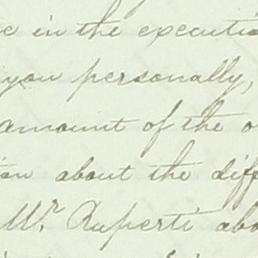 in the executi
you personally,
amount of the o
about the diff
Mr. Ruperti abo